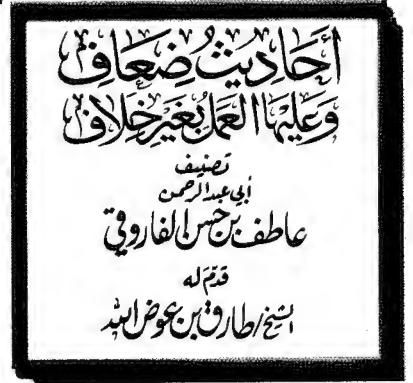 أَحَادِيثُ ضِعَافٌ
وَعَلَيْهَا العَمَلُ بِغَيْرِ خِلَافٍ
تصنيف
أبي عبد الرحمن
عاطف بن حسن الفاروقي
قدّم له
الشيخ / طارق بن عوض الله